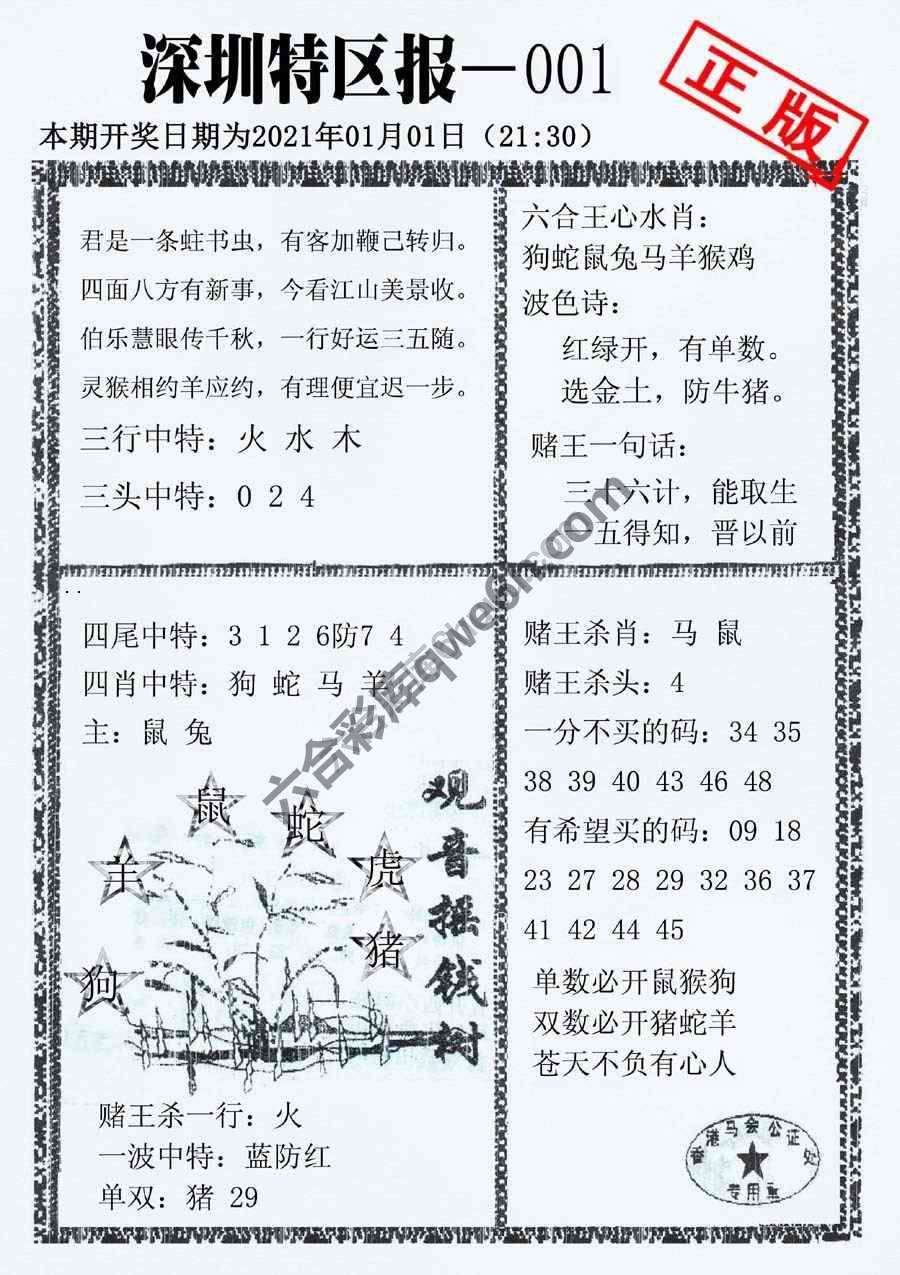 深圳特区报—001
正版
本期开奖日期为2021年01月01日（21:30）
君是一条蛀书虫，有客加鞭己转归。
四面八方有新事，今看江山美景收。
伯乐慧眼传千秋，一行好运三五随。
灵猴相约羊应约，有理便宜迟一步。
三行中特：火 水 木
三头中特：0 2 4
六合王心水肖：
狗蛇鼠兔马羊猴鸡
波色诗：
红绿开，有单数。
选金土，防牛猪。
赌王一句话：
三十六计，能取生
一五得知，晋以前
四尾中特：3 1 2 6防7 4
四肖中特：狗 蛇 马 羊
主：鼠 兔
鼠
蛇
羊
虎
猪
狗
观音摇钱树
赌王杀一行：火
一波中特：蓝防红
单双：猪 29
赌王杀肖：马 鼠
赌王杀头：4
一分不买的码：34 35
38 39 40 43 46 48
有希望买的码：09 18
23 27 28 29 32 36 37
41 42 44 45
单数必开鼠猴狗
双数必开猪蛇羊
苍天不负有心人
香港马会公证处
专用章